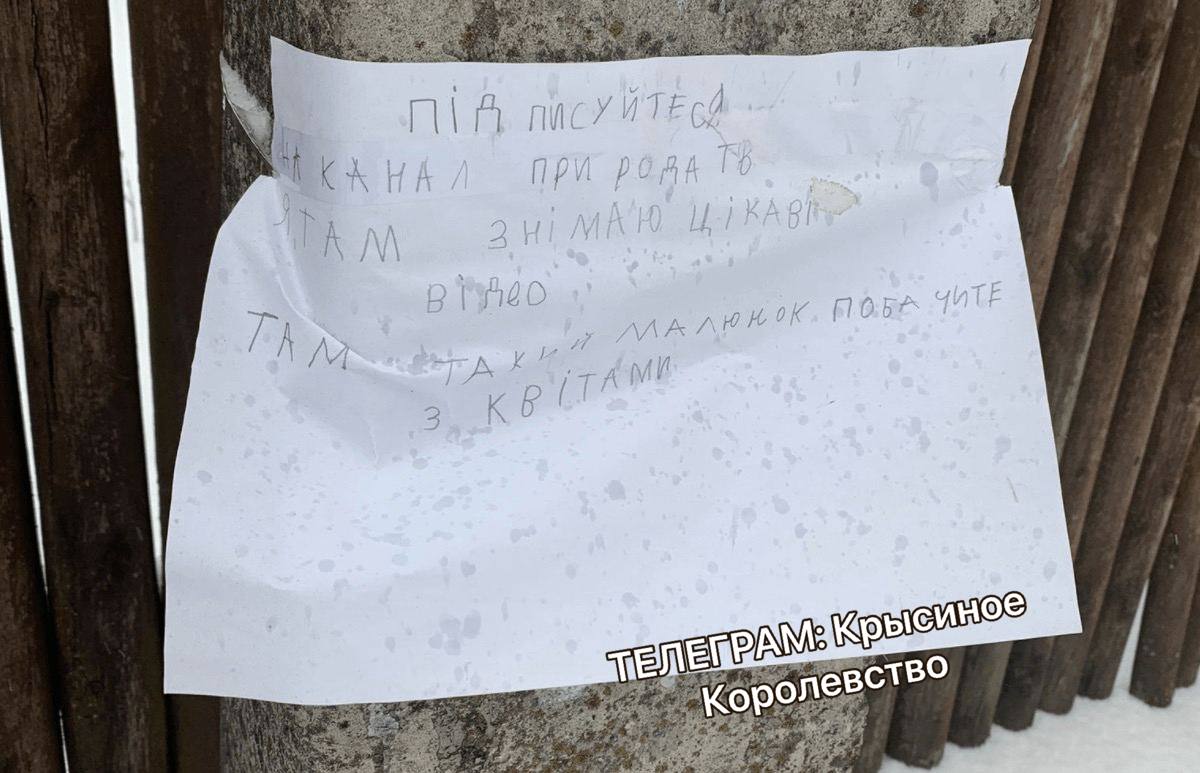 ПІД ПИСУЙТЕСЯ
НА КАНАЛ ПРИ РОДА ТВ
Я ТАМ ЗНІМАЮ ЦІКАВІ
ВІДЕО
ТАМ ТАКИЙ МАЛЮНОК ПОБАЧИТЕ
З КВІТАМИ
ТЕЛЕГРАМ: Крысиное
Королевство